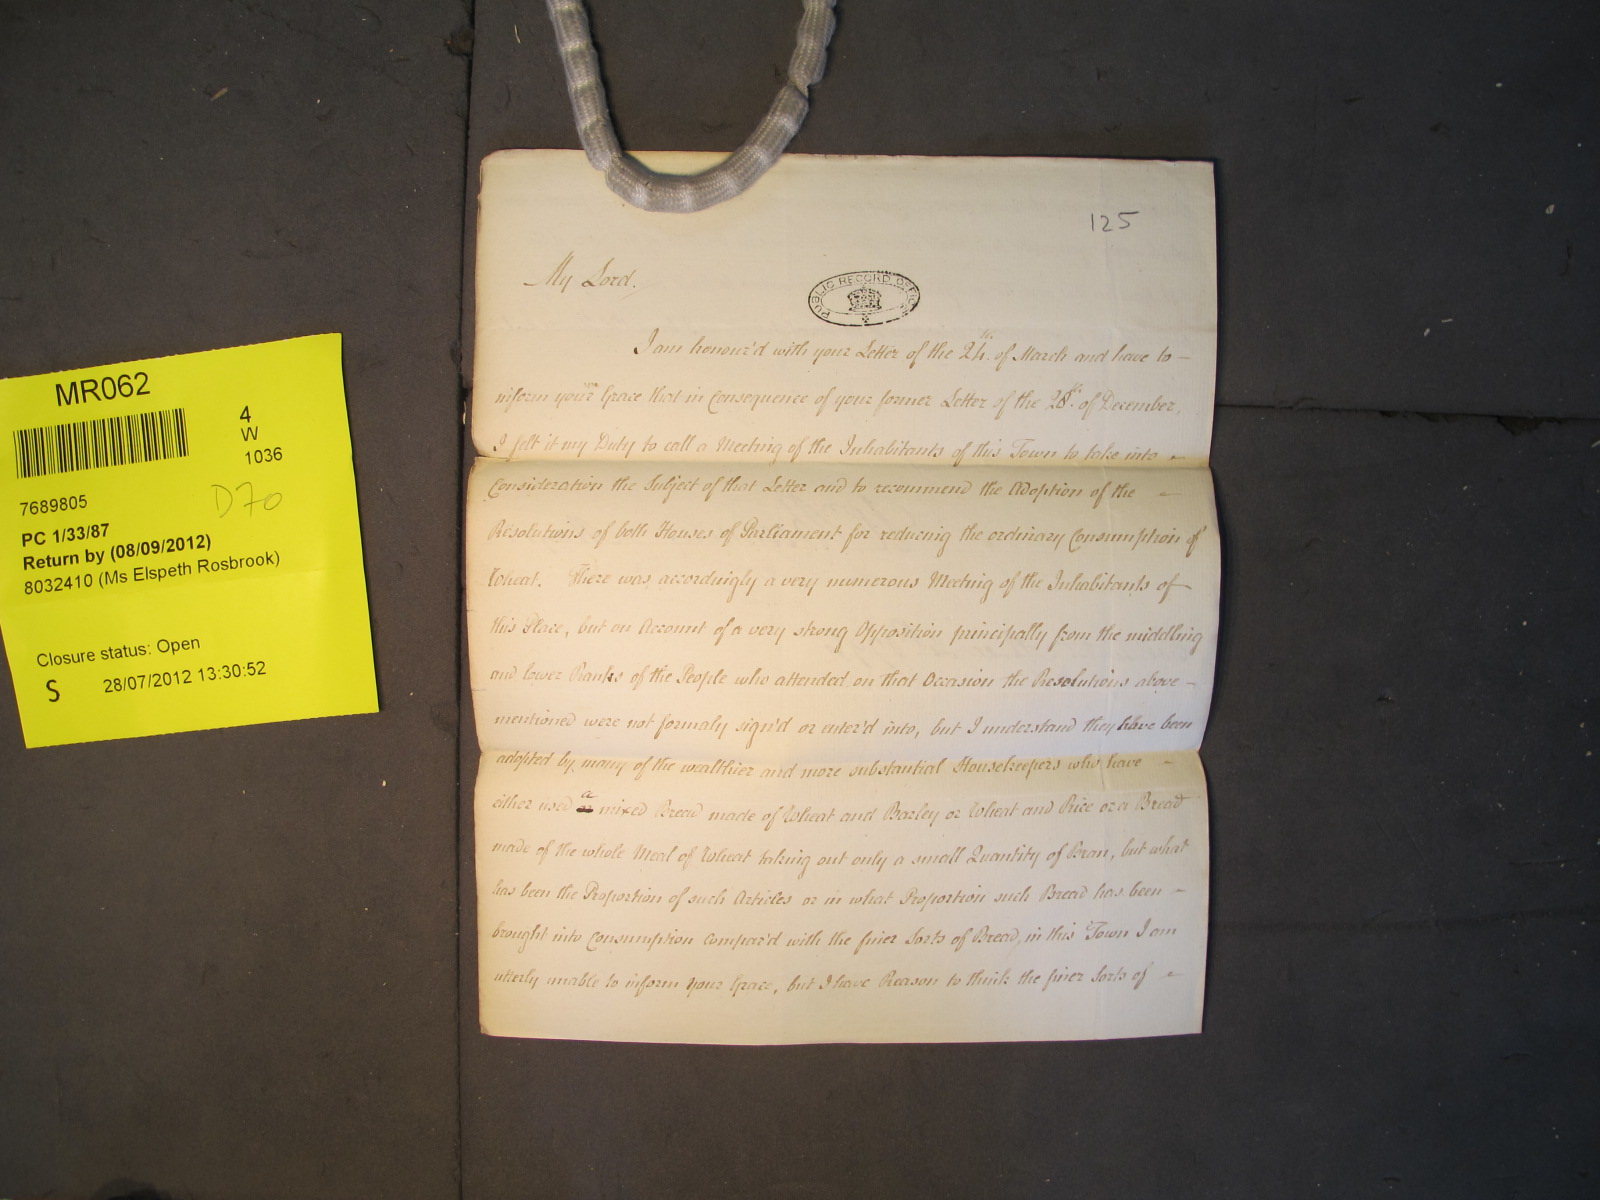 125
My Lord.
PUBLIC RECORD OFFICE
I am honour'd with your Letter of the 24th. of March and have to –
inform your Grace that in Consequence of your former Letter of the 28th. of December,
I felt it my Duty to call a Meeting of the Inhabitants of this Town to take into –
Consideration the Subject of that Letter and to recommend the Adoption of the –
Resolutions of both Houses of Parliament for reducing the ordinary Consumption of
Wheat. There was accordingly a very numerous Meeting of the Inhabitants of –
this Place, but on Account of a very strong Opposition principally from the middling
and lower Ranks of the People who attended on that Occasion the Resolutions above –
mentioned were not formaly sign'd or enter'd into, but I understand they have been
adopted by many of the wealthier and more substantial Housekeepers who have –
either used a mixed Bread made of Wheat and Barley or Wheat and Rice or a Bread
made of the whole Meal of Wheat taking out only a small Quantity of Bran, but what
has been the Proportion of such Articles or in what Proportion such Bread has been –
brought into Consumption compar'd with the finer Sorts of Bread, in this Town I am
utterly unable to inform your Grace, but I have Reason to think the finer Sorts of –
MR062
4
W
1036
7689805
D70
PC 1/33/87
Return by (08/09/2012)
8032410 (Ms Elspeth Rosbrook)
Closure status: Open
S 28/07/2012 13:30:52